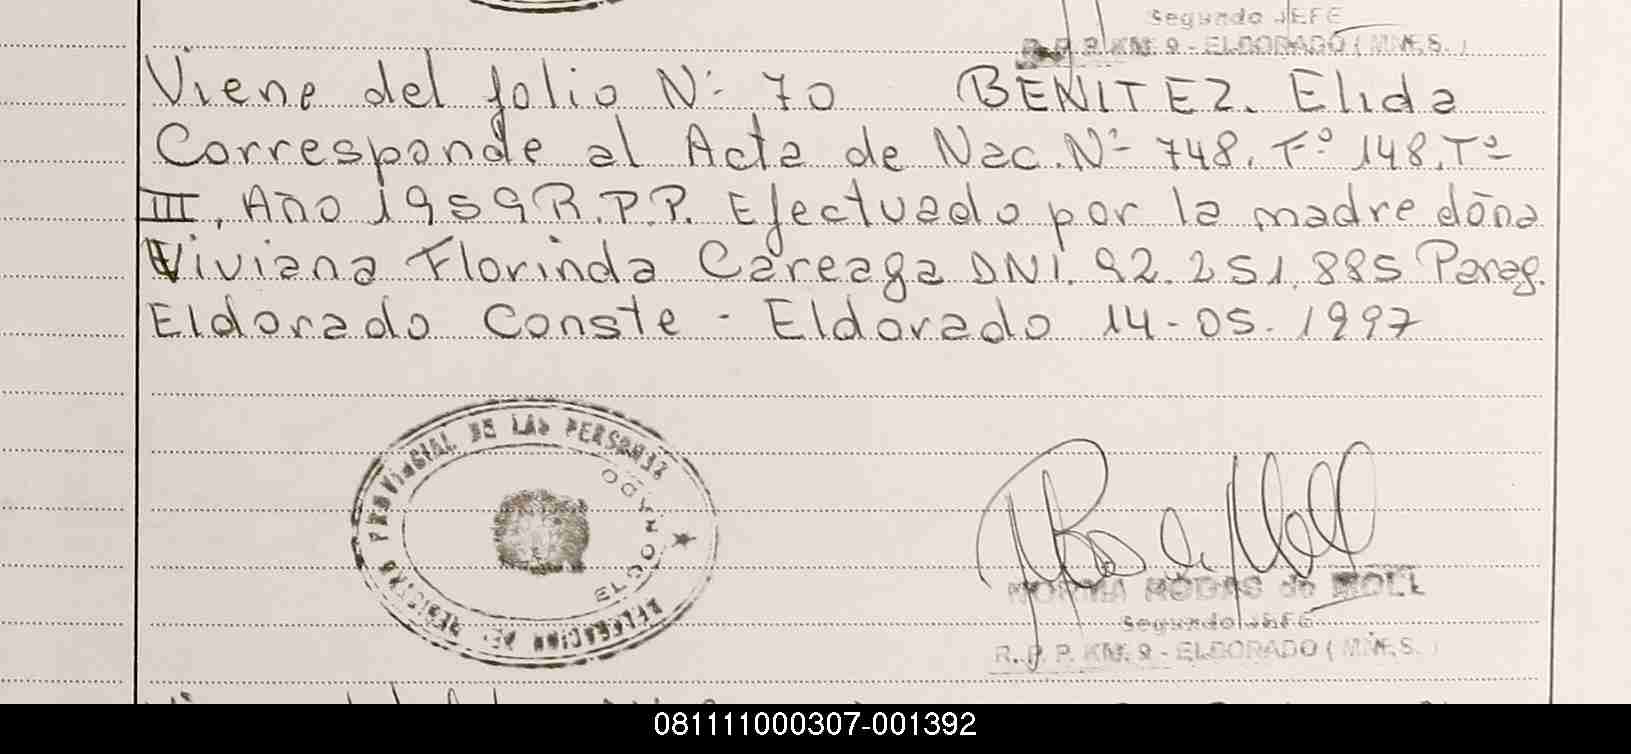 Segundo JEFE
R.P.P. KM. 9 - ELDORADO (MNES.)
Viene del folio Nº 70 BENITEZ. Elida
Corresponde al Acta de Nac. Nº 748. Fº 148. Tº
III, Año 1959 R.P.P. Efectuado por la madre doña
Viviana Florinda Careaga DNI. 92.251.885 Parag.
Eldorado Conste - Eldorado 14-05-1997
DELEGACION DEL REGISTRO PROVINCIAL DE LAS PERSONAS
ELDORADO
NORMA RODAS de MOLL
Segundo JEFE
R.P.P. KM. 9 - ELDORADO (MNES.)
081111000307-001392